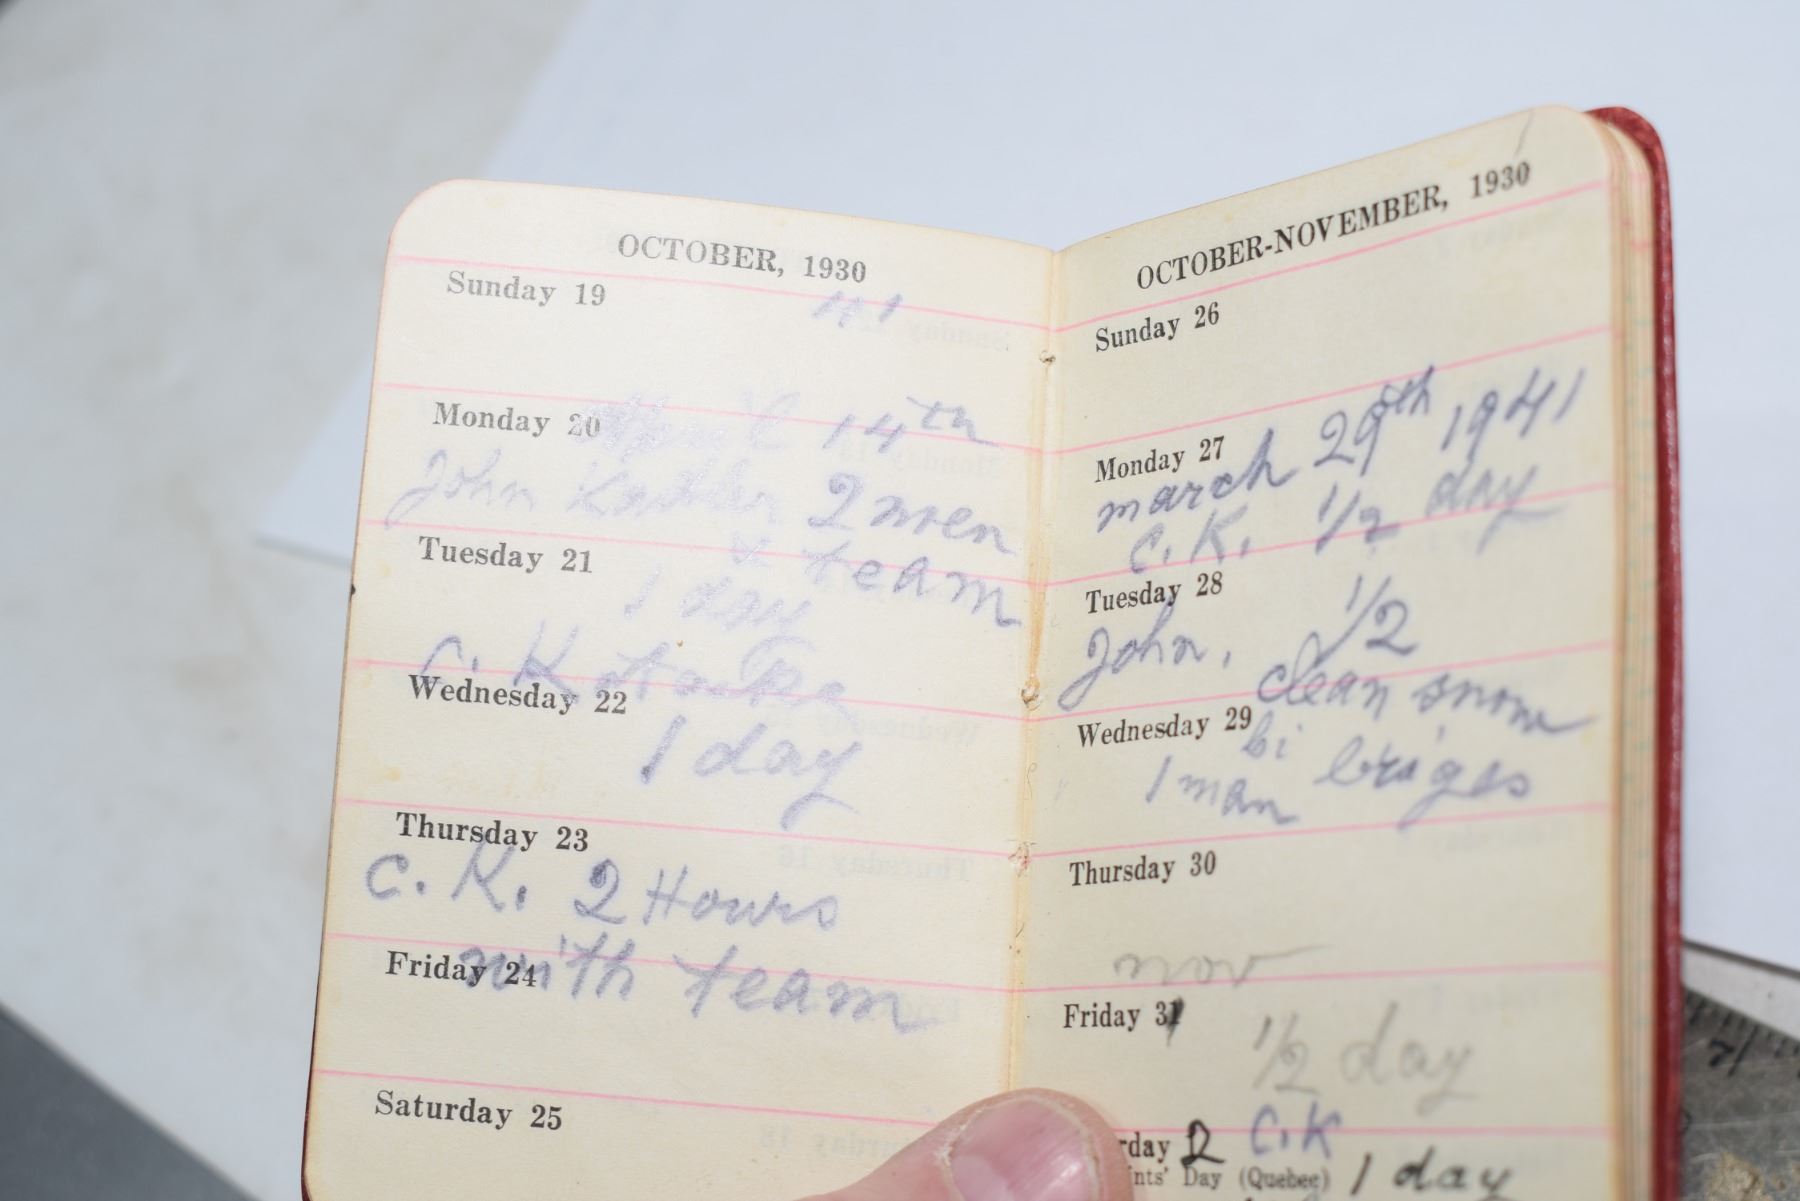 OCTOBER, 1930
Sunday 19
41
Monday 20
April 14th
John 2 men
Tuesday 21
& team
1 day
C. K.
Wednesday 22
1 day
Thursday 23
C. K. 2 Hours
Friday 24
with team
Saturday 25
OCTOBER-NOVEMBER, 1930
Sunday 26
Monday 27
march 29th 1941
C. K. 1/2 day
Tuesday 28
John, 1/2
clean snow
Wednesday 29
bi briges
1 man
Thursday 30
nov
Friday 31
1/2 day
rday 2 C.K
nts' Day (Quebec) 1 day